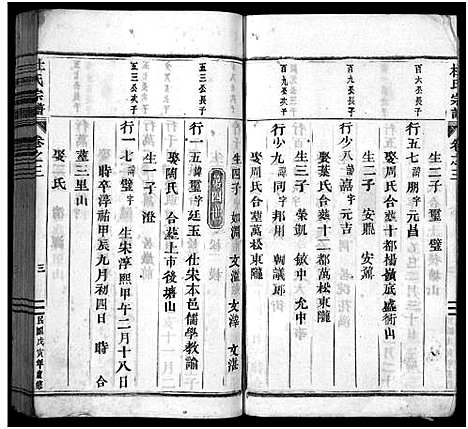 杜氏宗譜
卷之三
百六公長子
行五七 諱朋 字元昌
娶周氏合葬十都楊嶺底盛衕山
生二子 璽 璧
百九公長子
行少八 諱嘉 字元吉
娶葉氏合葬十二都萬松東隴
生二子 安熙 安黨
百九公次子
行少九 諱同 字邦用 朝議郎
娶周氏合葬萬松東隴
生三子 榮凱 敏中 允中
第四世
五三公長子
行一五 諱璽 字廷玉 仕宋本邑儒學教諭
娶陶氏 合葬上市後塘山
生四子 如澗 文滋 文澤 文湛
五三公次子
行一七 諱璧 字 生宋淳熙甲午二月十八日
時卒淳祐甲辰九月初四日 時合
葬三里山
生一子 澄
娶 氏
杜氏宗譜
卷之三
三
民國戊寅年重修